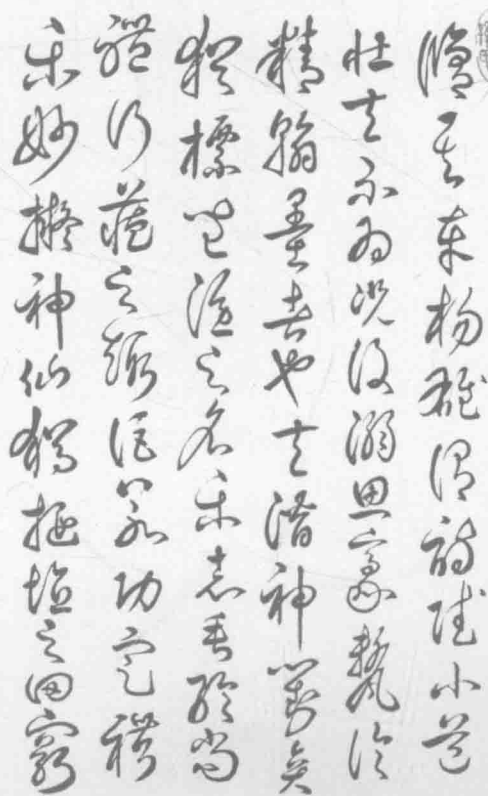 脩其本楊雄謂詩賦小道
壯夫不為況復溺思豪釐淪
精翰墨者也夫潛神對奕
猶標坐隱之名樂志垂綸尚
體行藏之趣詎若功定禮
樂妙擬神仙猶埏埴之罔窮